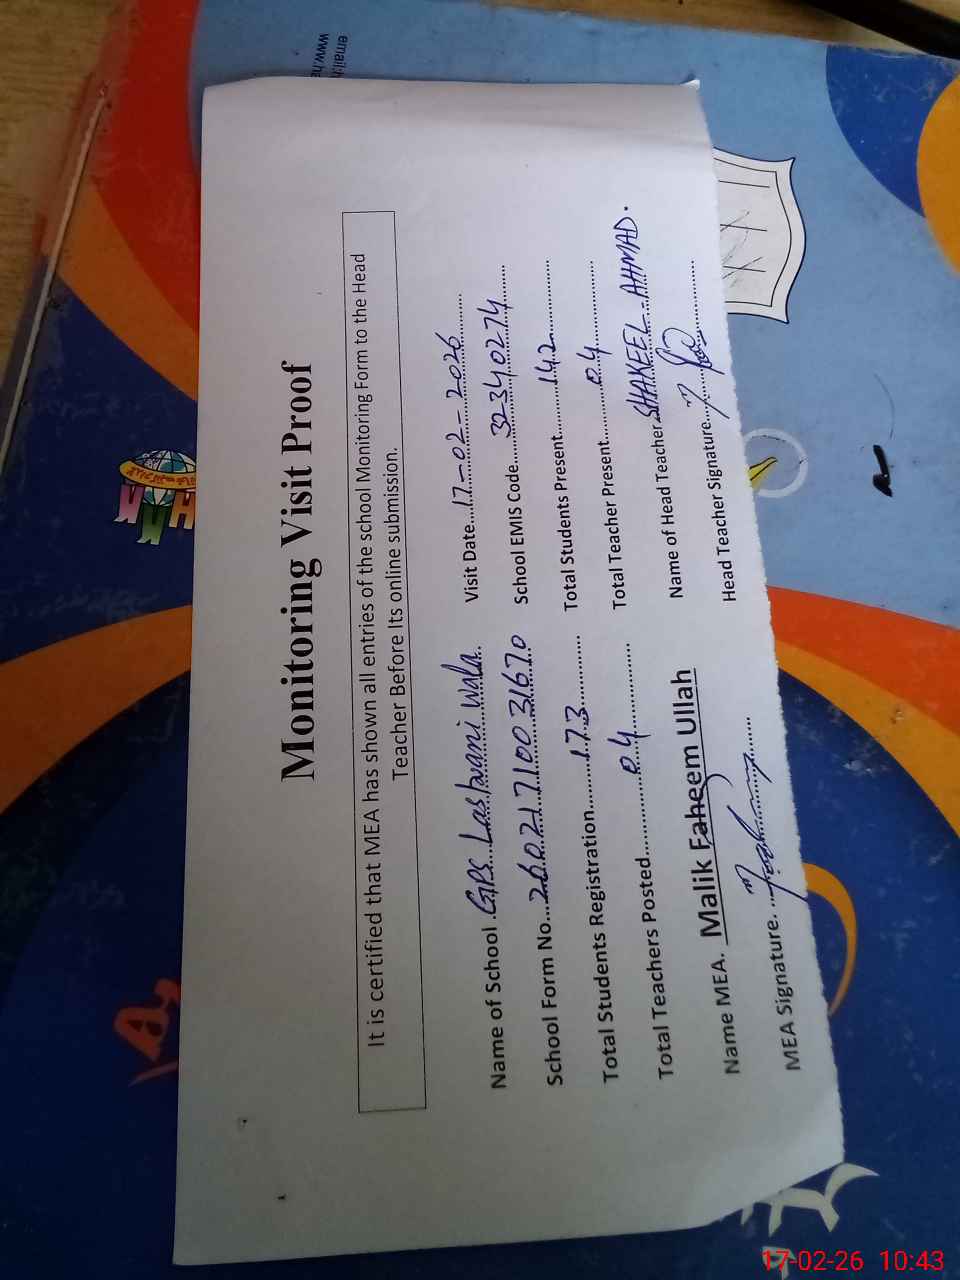 Monitoring Visit Proof
It is certified that MEA has shown all entries of the school Monitoring Form to the Head
Teacher Before Its online submission.
Name of School. GPS Lashwani Wala Visit Date 17-02-2026
School Form No. 26021710031670 School EMIS Code 32340274
Total Students Registration 173 Total Students Present 142
Total Teachers Posted 04 Total Teacher Present 04
Name MEA. Malik Faheem Ullah Name of Head Teacher SHAKEEL AHMAD.
MEA Signature. Head Teacher Signature
17-02-26 10:43